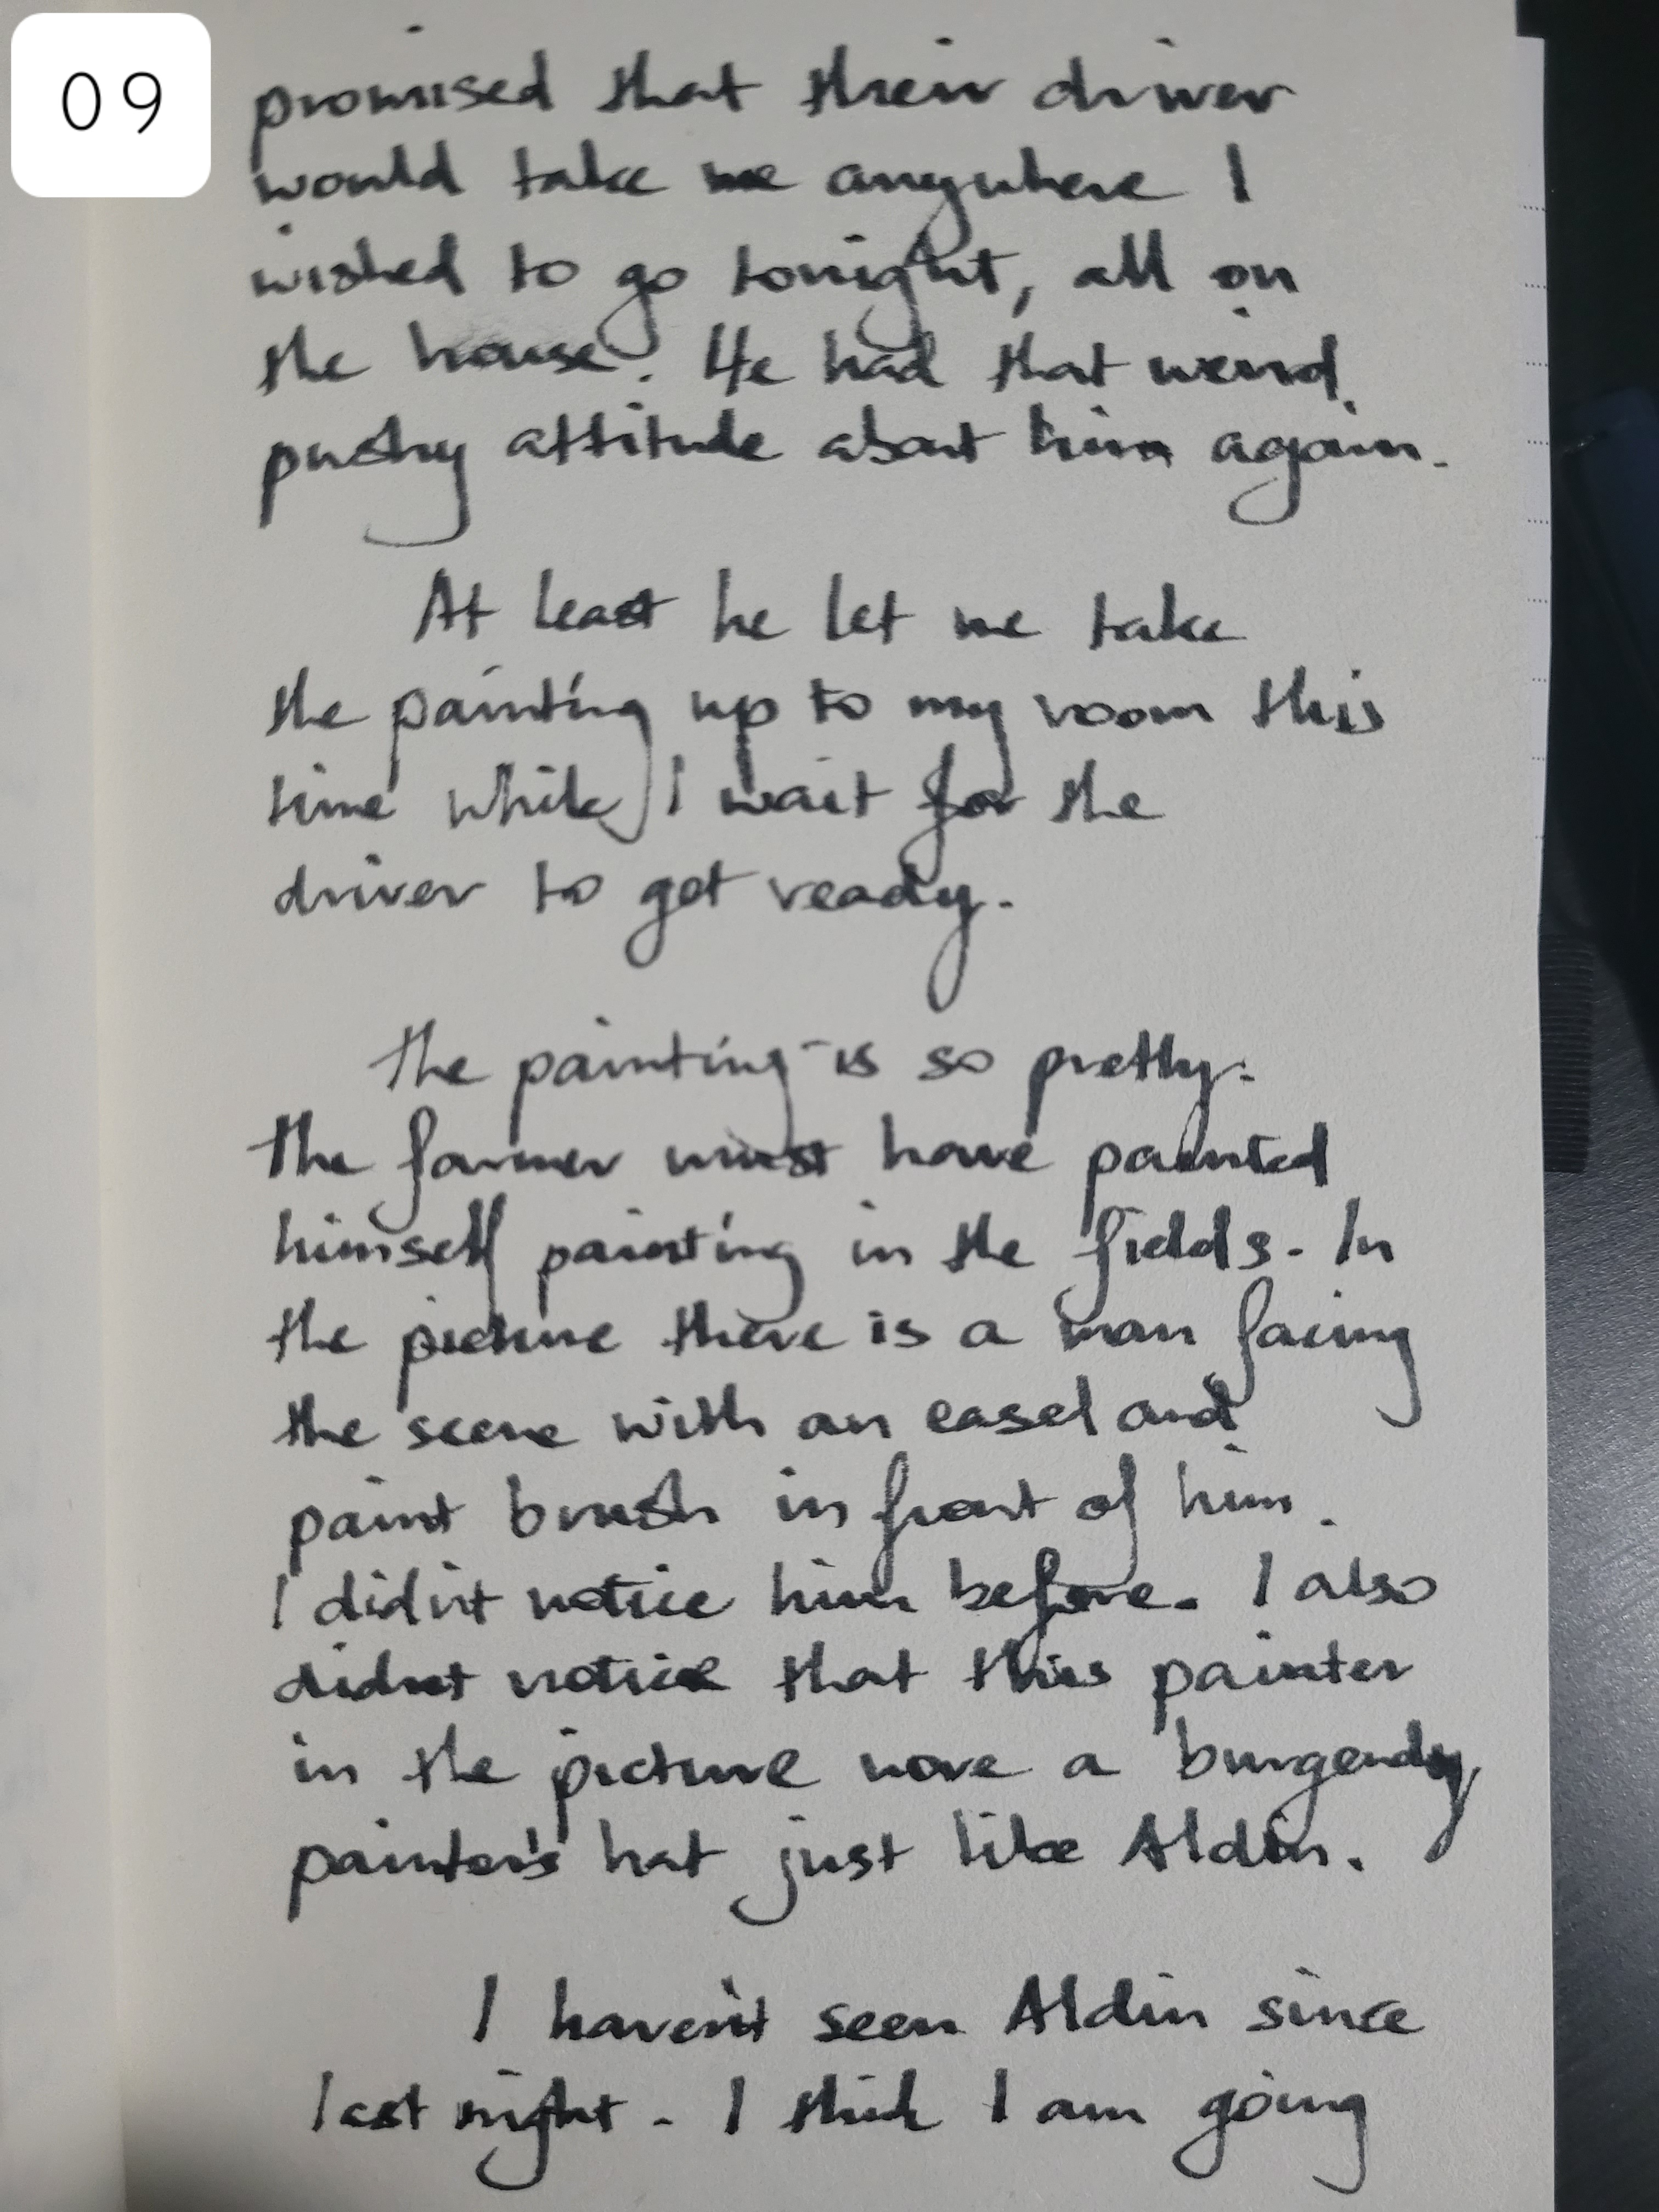 09
promised that their driver
would take me anywhere I
wished to go tonight, all on
the house. He had that weird
pushy attitude about him again.
At least he let me take
the painting up to my room this
time while I wait for the
driver to get ready.
The painting is so pretty.
The farmer must have painted
himself painting in the fields. In
the picture there is a man facing
the scene with an easel and
paint brush in front of him.
I didn't notice him before. I also
didn't notice that this painter
in the picture wore a burgendy
painter's hat just like Aldin.
I haven't seen Aldin since
last night. I think I am going